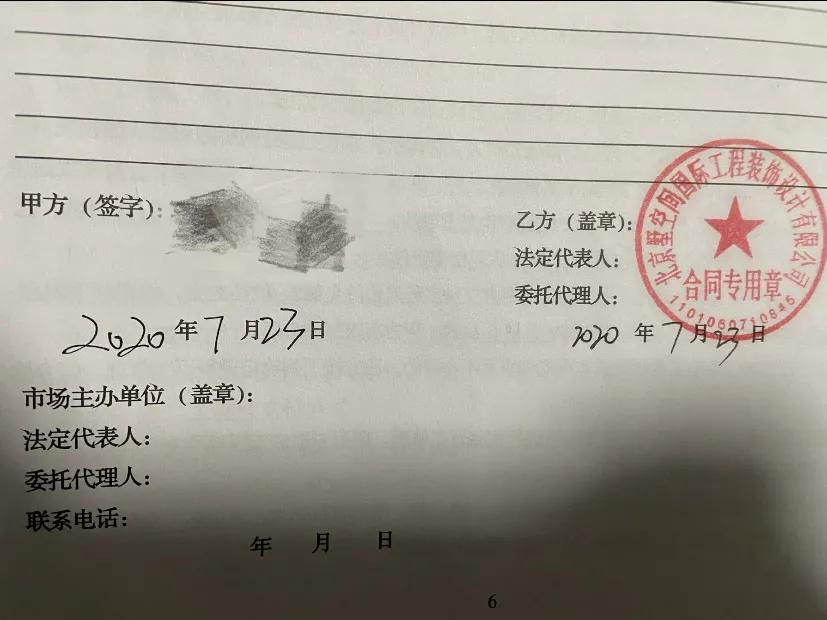 甲方（签字）：
2020年7月23日
乙方（盖章）：
法定代表人：
委托代理人：
2020年7月23日
北京墅空间国际工程装饰设计有限公司
合同专用章
1101060710846
市场主办单位（盖章）：
法定代表人：
委托代理人：
联系电话：
年 月 日
6